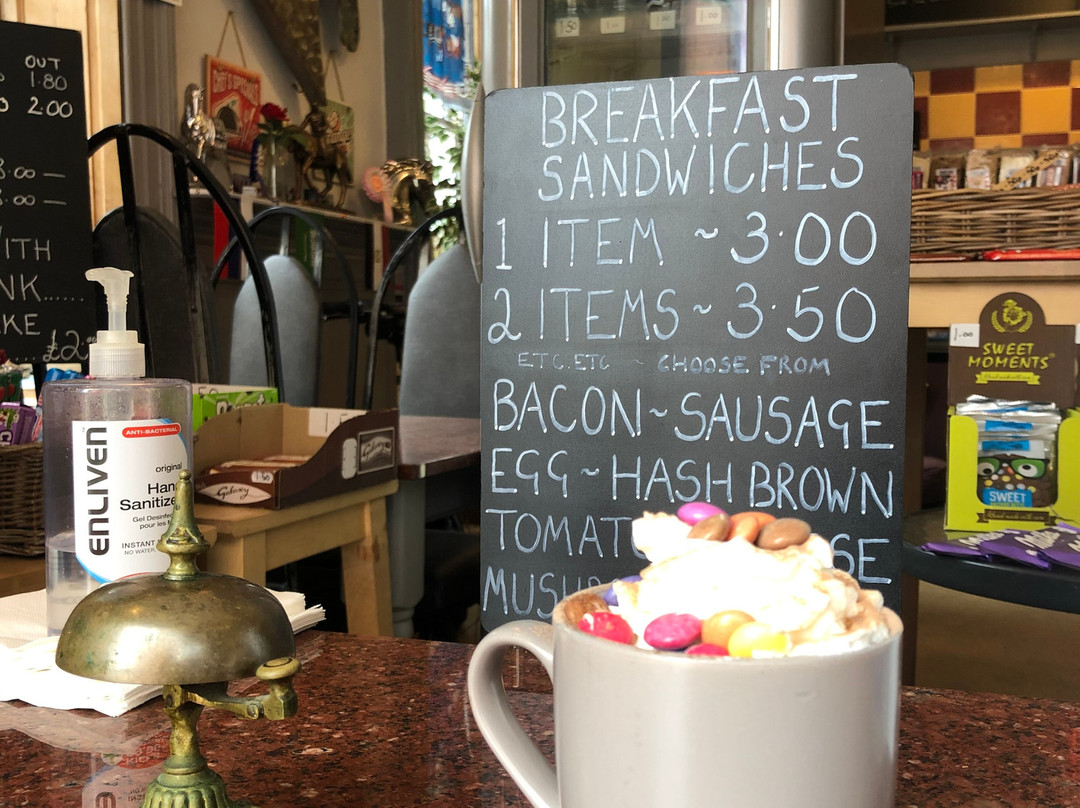 OUT
1·80
2·00
3·00 —
·00 —
WITH
£2
BREAKFAST
SANDWICHES
1 ITEM ~ 3·00
2 ITEMS ~ 3·50
ETC.ETC ~ CHOOSE FROM
BACON ~ SAUSAGE
EGG ~ HASH BROWN
TOMAT
SE
MUSH
ENLIVEN
ANTI-BACTERIAL
original
Han
Sanitize
Gel Desinfe
pour les
INSTANT
NO WATER
Galaxy
Galaxy
SWEET
MOMENTS
SWEET
1.50
1.00